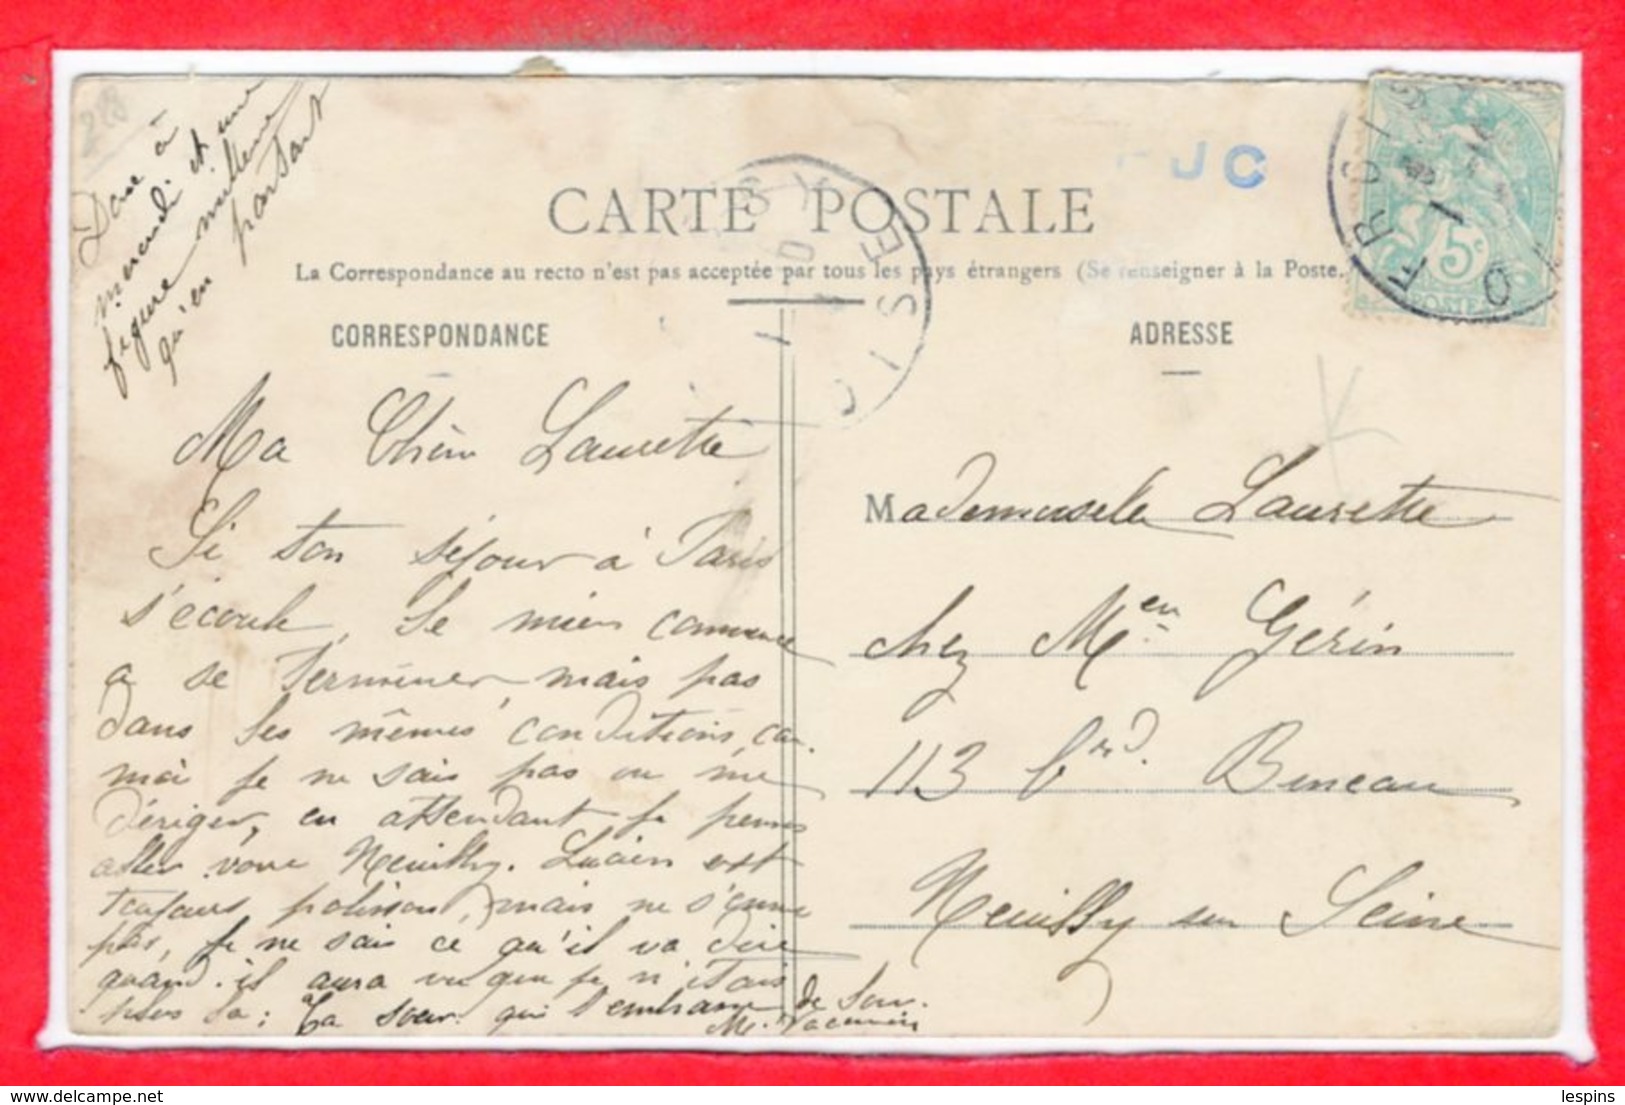 228
JC
CARTE POSTALE
La Correspondance au recto n'est pas acceptée par tous les pays étrangers (Se renseigner à la Poste.
CORRESPONDANCE
à
mercredi et une
figure meilleure
qu'en partant
Ma Chère Laurette
Si ton séjour à Paris
s'écoule, le mien commence
a se terminer, mais pas
dans les mêmes conditions, car
moi je ne sais pas ou me
dériger, en attendant je pense
aller voire Neuilly. Lucien est
toujours polisson, mais ne s'ennuie
pas, je ne sais ce qu'il va dire
quand il aura vu que je n'étais
plus la; Ta soeur qui t'embrasse de
M.
ADRESSE
Mademoiselle Laurette
chez Men Gérin
113 brd. Bineau
Neuilly sur Seine
5c
POSTES
delcampe.net
lespins